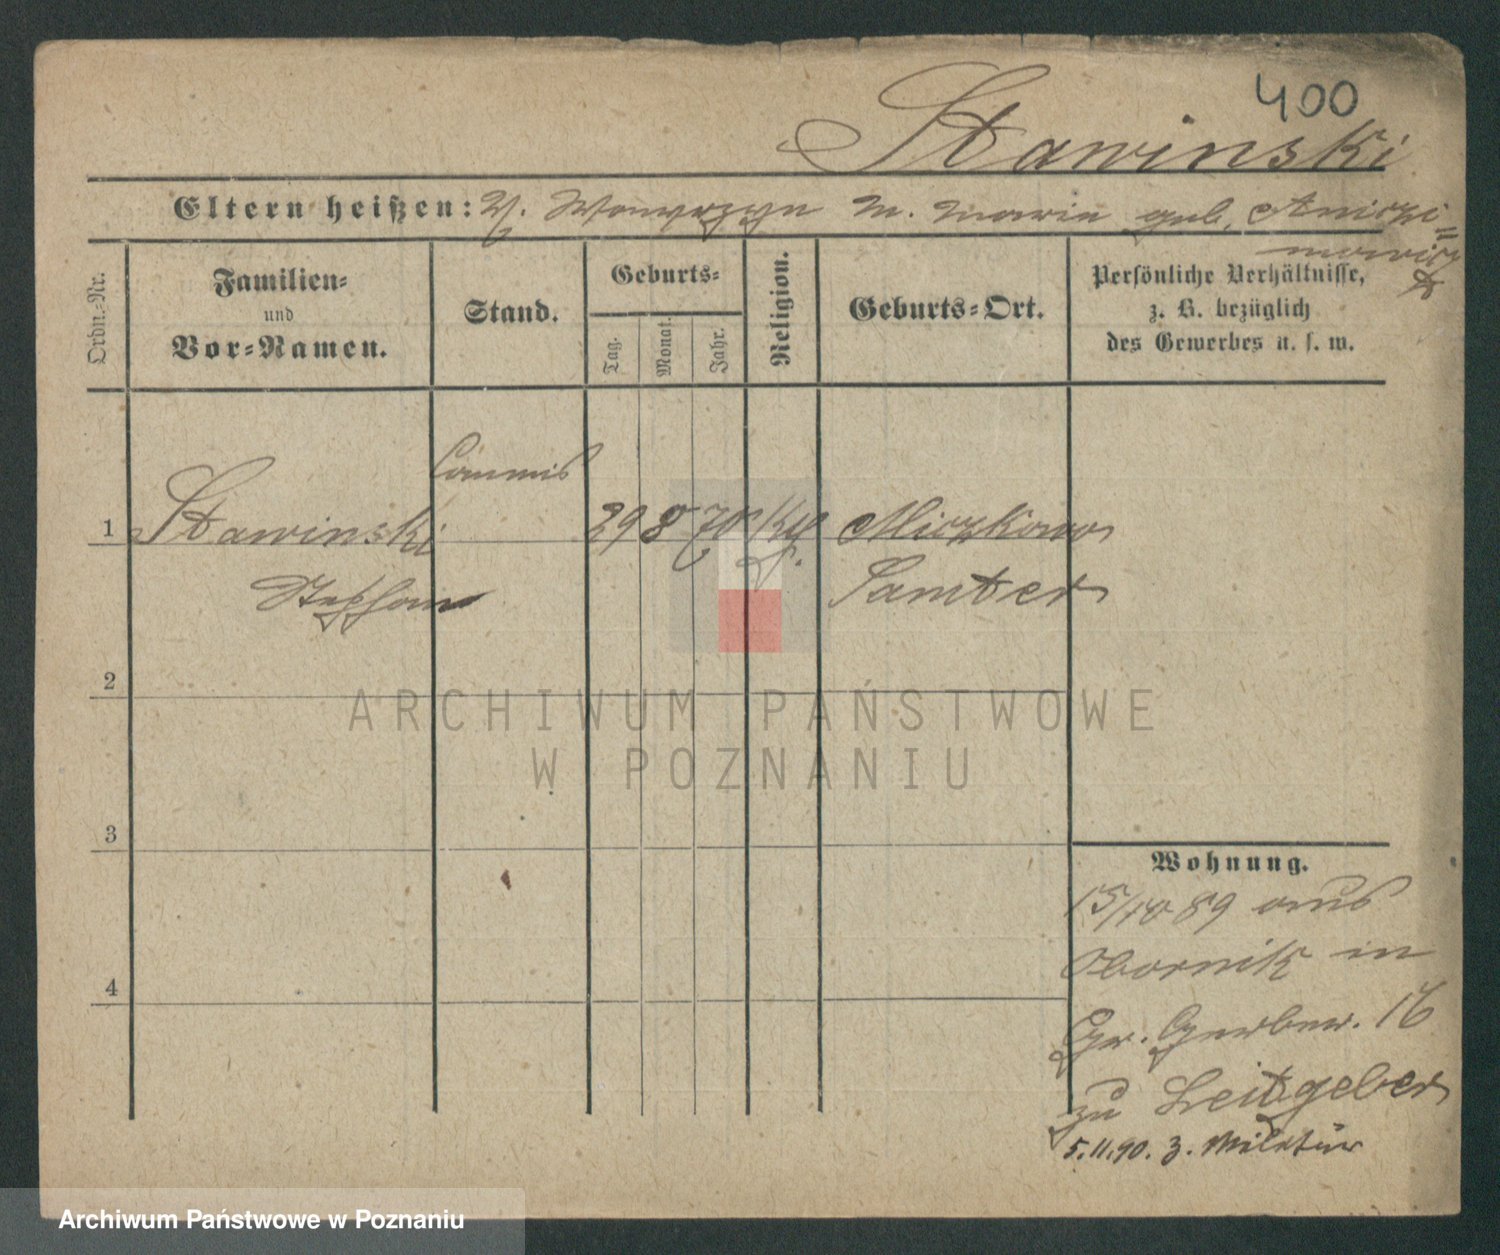 400
Stawinski
Eltern heißen: V. Wawrzyn M. Marie geb. Aniczi=
Ordn.-Nr.
Familien-
und
Vor-Namen.
Stand.
Geburts-
Tag.
Monat.
Jahr.
Religion.
Geburts-Ort.
Persönliche Verhältnisse,
z. B. bezüglich
des Gewerbes u. s. w.
Commis
1 Stawinski 29 8 70 Kg. Miczkowo
Stephan Samter
2
ARCHIWUM PAŃSTWOWE
W POZNANIU
3
Wohnung.
15/10 89 aus
Obornik in
4
Gr. Gerber. 16
zu Leitgeber
5.11.90. z. Militär
Archiwum Państwowe w Poznaniu